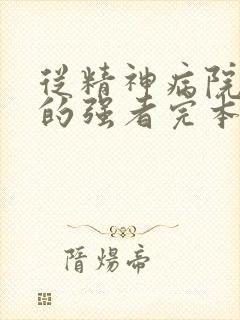 從精神病院
的强者完本
隋煬帝